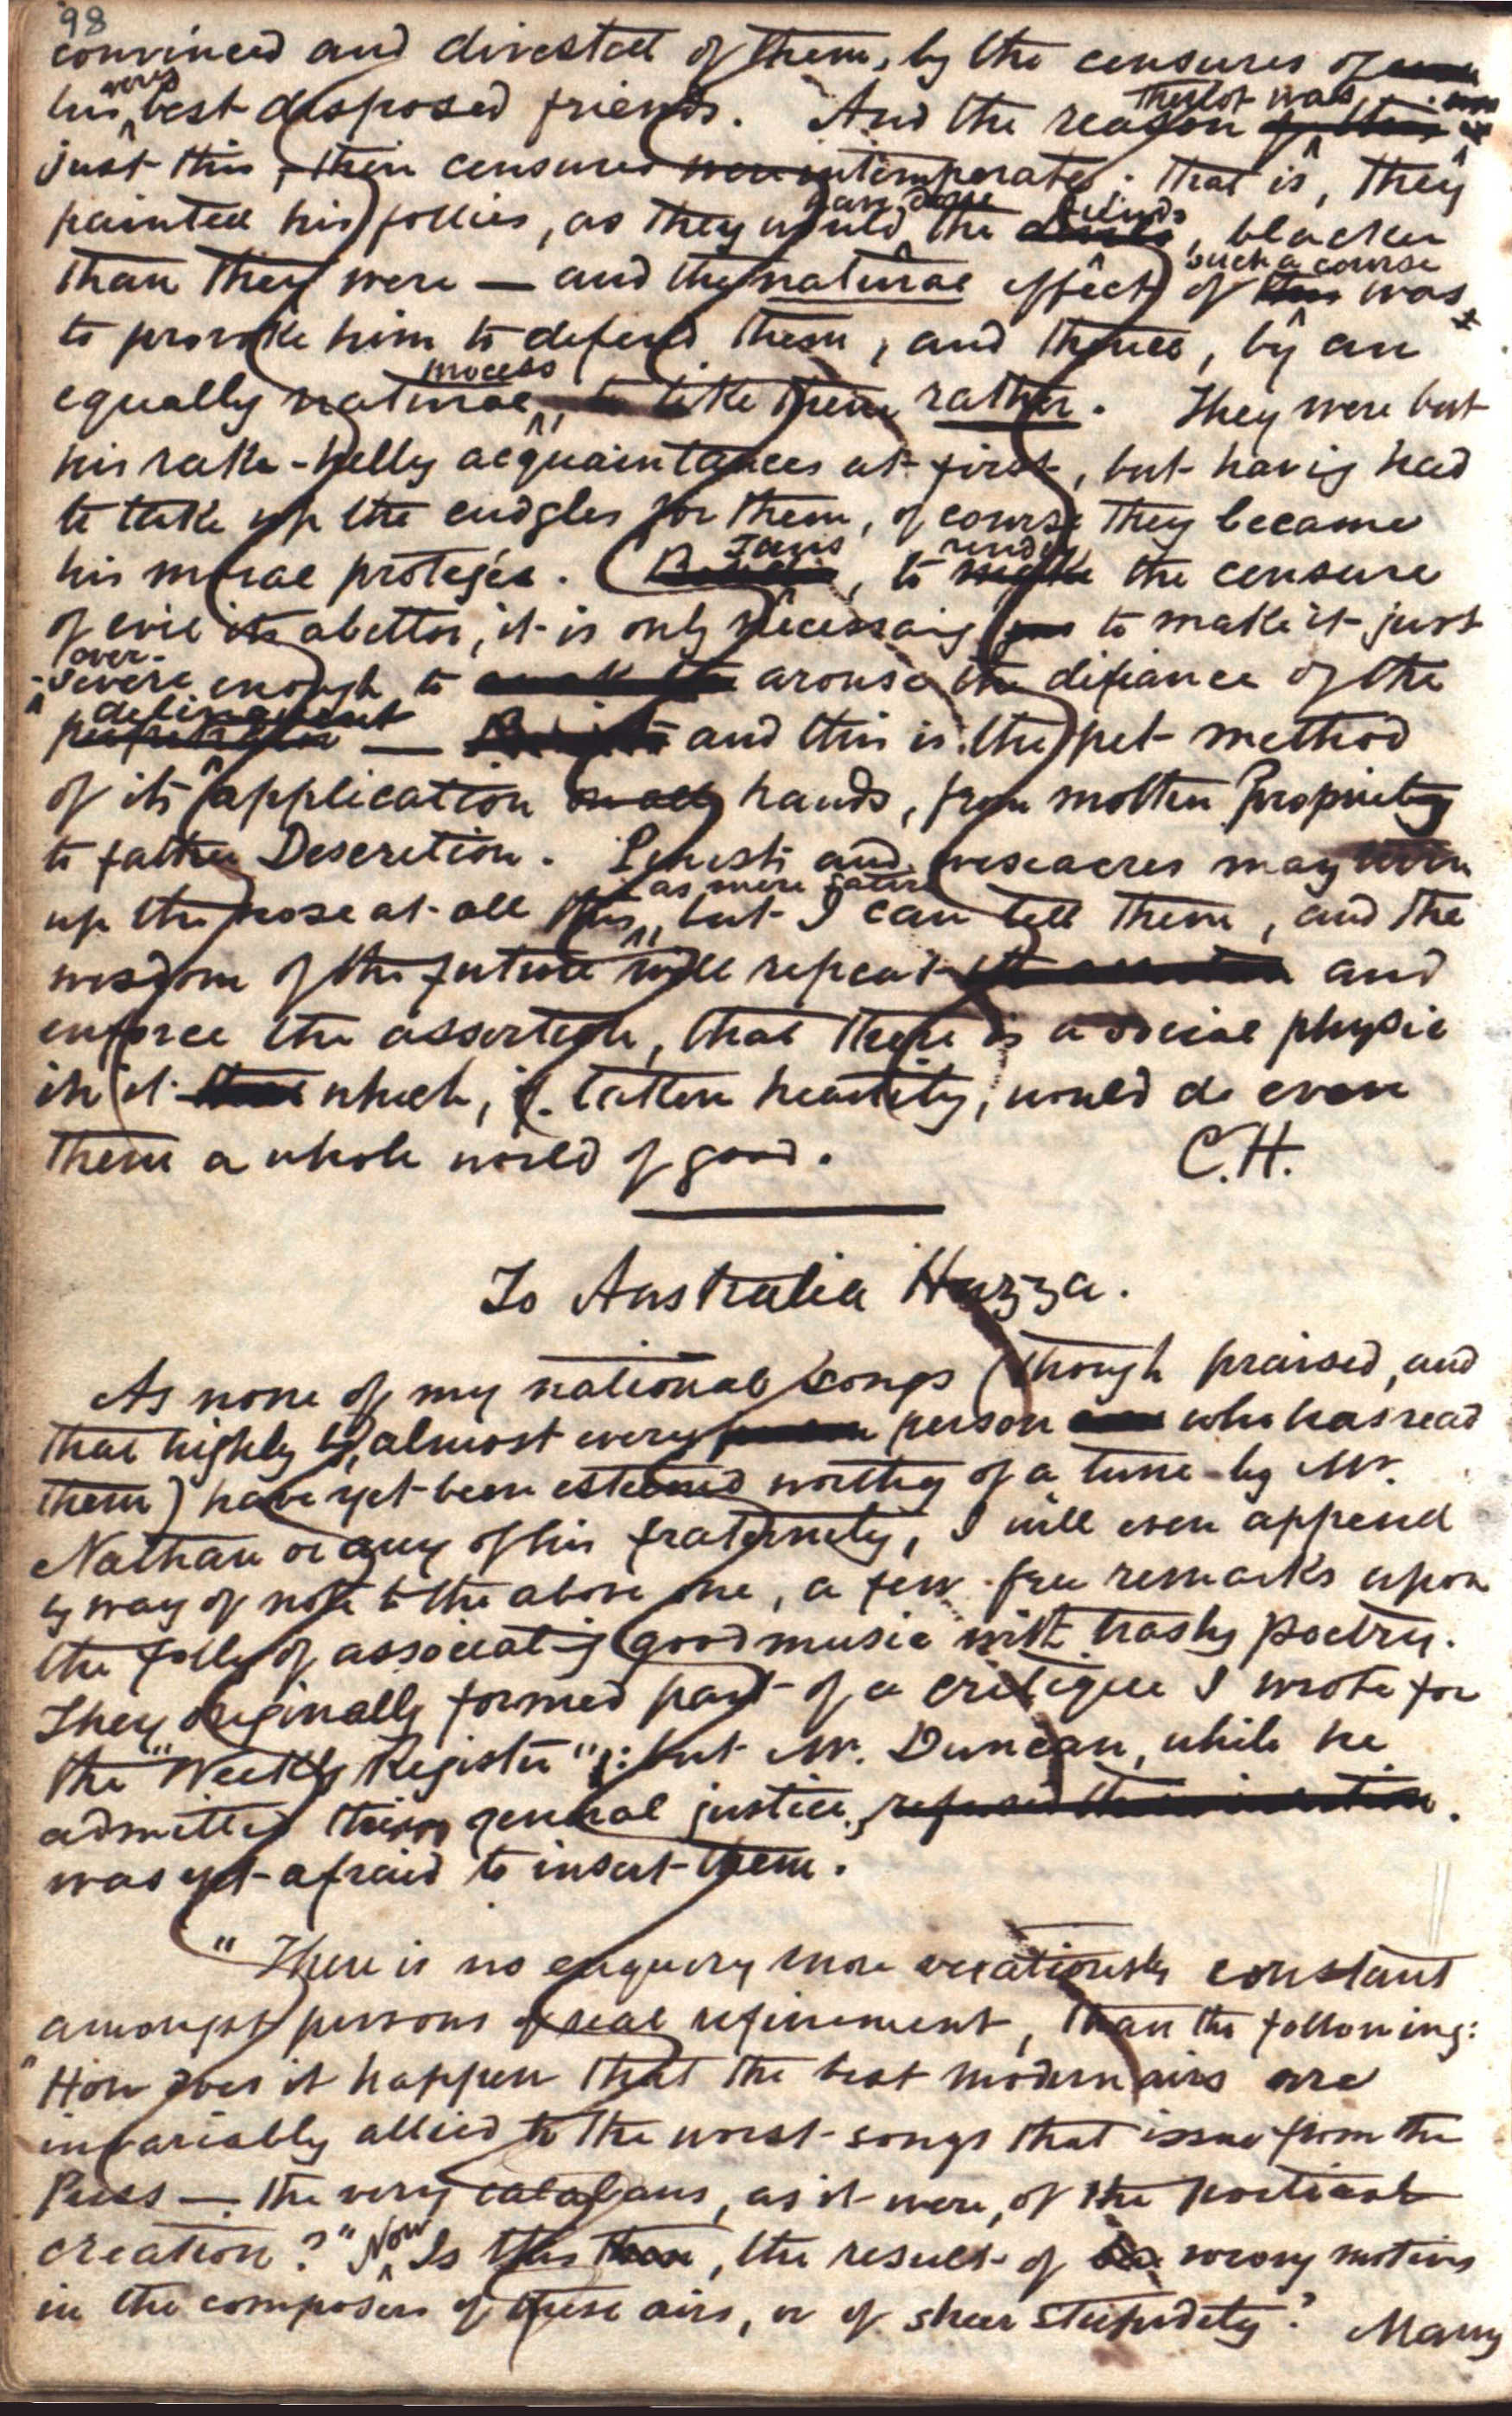 98
convinced and divested of them, by the censures of
his very best disposed friends. And the reason they lot was
just this, their censures were intemperate; that is, they
painted his follies, as they would have done the fiends, blacker
than they were — and the natural effect of such a course was
to provoke him to defend them, and thence, by an
equally natural process, to like them rather. They were but
his rake-helly acquaintances at first, but having had
to take up the cudgles for them, of course they became
his moral protegés. (Thus, to render the censure
of evil its abettor, it is only necessary to make it just
over-severe enough to arouse the defiance of the
delinquent — and this is the pet method
of its application on all hands, from mother Propriety
to father Descretion. Purists and wiseacres may turn
up the nose at all this, as mere satire, but I can tell them, and the
wisdom of the future will repeat and
enforce the assertion, that there is a social physic
in it which, if taken heartily, would do even
them a whole world of good. C.H.
To Australia Huzza.
As none of my national songs (though praised, and
that highly by almost every person who has read
them) have yet been esteemed worthy of a tune by Mr.
Nathan or any of his fraternity, I will even append
by way of note to the above one, a few free remarks upon
the folly of associating good music with trashy poetry.
They originally formed part of a critique I wrote for
the "Weekly Register": but Mr. Duncan, while he
admitted their general justice, refused their insertion.
was yet afraid to insert them.
"There is no enquiry more vexatiously constant
amongst persons of real refinement, than the following:
"How does it happen that the best modern airs are
invariably allied to the worst songs that issue from the
Press — the very cabagans, as it were, of the poetical
creation?" Now Is this then, the result of wrong motives
in the composers of these airs, or of sheer stupidity? Many